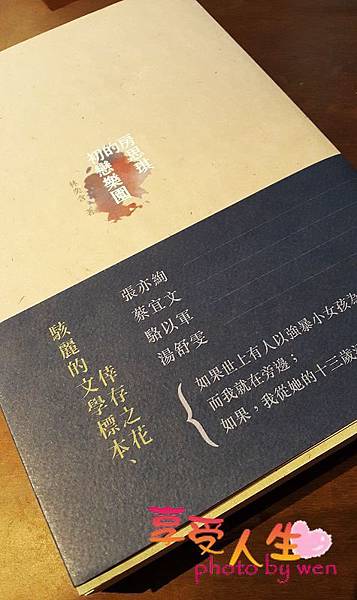 房思琪
的
初戀樂園
林奕含 著
張亦絢
蔡宜文
駱以軍
湯舒雯
如果世上有人以強暴小女孩為
而我就在旁邊；
如果，我從她的十三歲
倖存之花、
駭麗的文學標本
享受人生
photo by wen